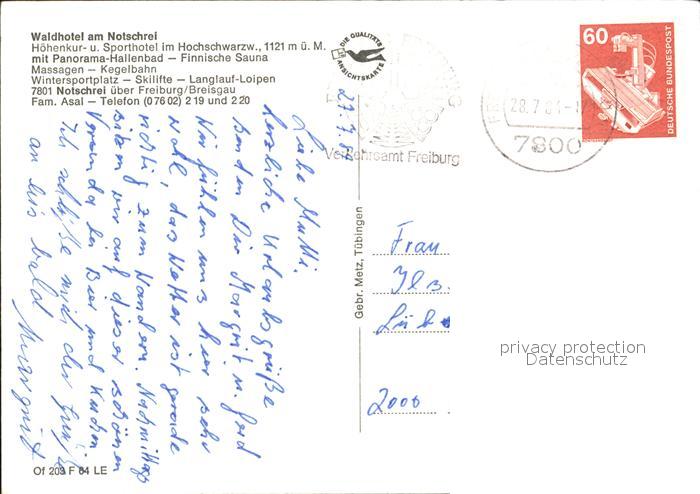 Waldhotel am Notschrei
Höhenkur- u. Sporthotel im Hochschwarzw., 1121 m ü. M.
mit Panorama-Hallenbad – Finnische Sauna
Massagen – Kegelbahn
Wintersportplatz – Skilifte – Langlauf-Loipen
7801 Notschrei über Freiburg/Breisgau
Fam. Asal – Telefon (0 76 02) 2 19 und 2 20
DIE QUALITÄTS
ANSICHTSKARTE
Verkehrsamt Freiburg
28.7.81
7800
60
DEUTSCHE BUNDESPOST
27.7.81
Liebe Mutti.
Herzliche Urlaubsgrüße
senden Dir Margrit u. Gerd
Wir fühlen uns hier sehr
wohl, das Wetter ist gerade
richtig zum Wandern. Nachmittags
sitzen wir auf dieser schönen
Veranda bei Bier und Kuchen
Ich schließe mich der
an bis bald Margrit
Gebr. Metz, Tübingen
Frau
Ils.
Lüb
2000
privacy protection
Datenschutz
Of 203 F 64 LE